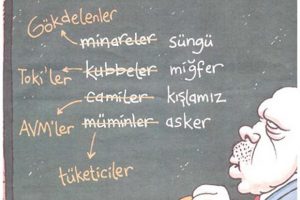 Gökdelenler
minareler süngü
Toki'ler kubbeler miğfer
camiler kışlamız
AVM'ler müminler asker
tüketiciler